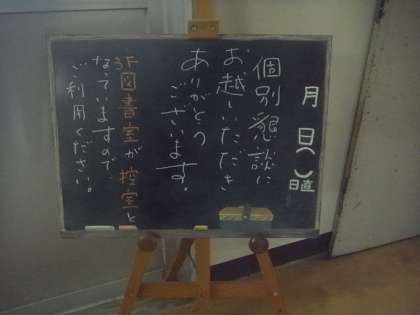 月 日( )
日直
個別懇談に
お越しいただき
ありがとう
ございます。
3F図書室が控室と
なっていますので
ご利用ください。